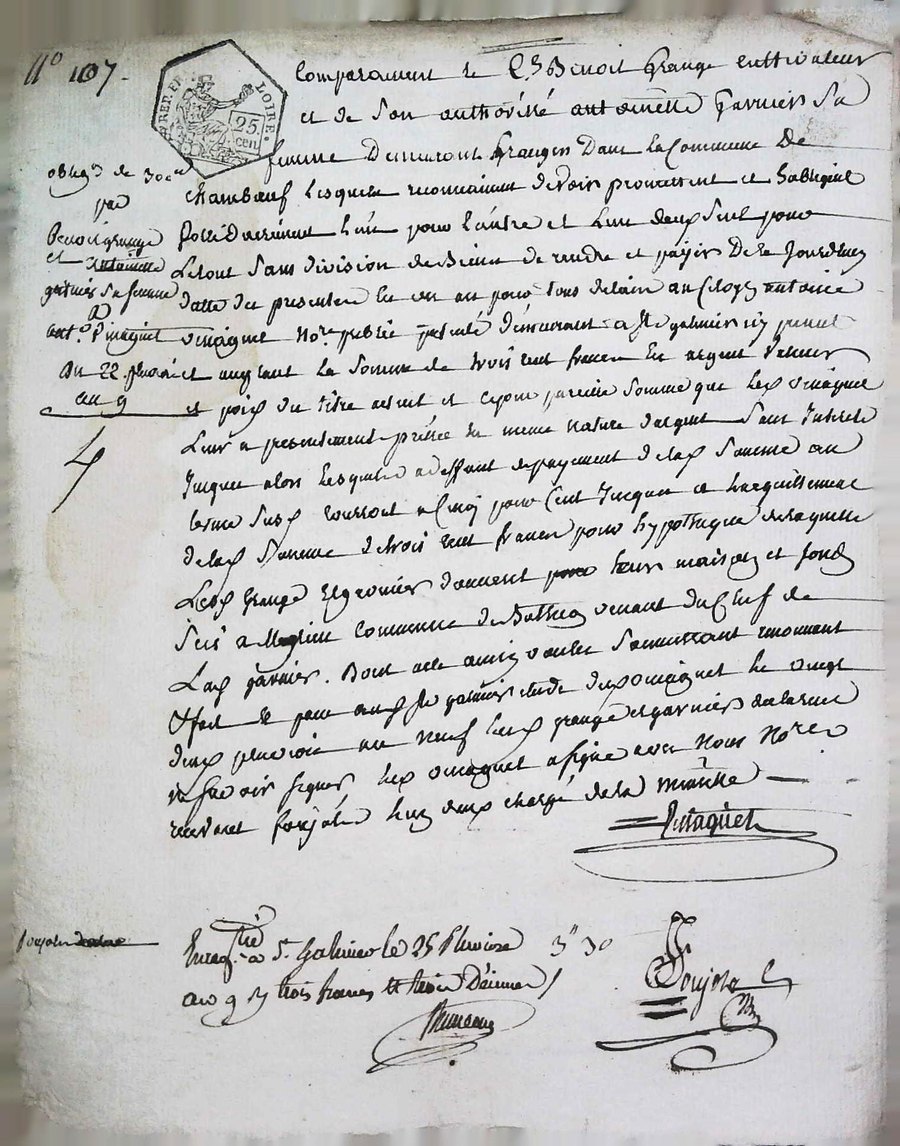 N° 107.
RÉP. FR. LOIRE.
25 cen
Comparaissent le C.en Benoit Grange cultivateur
et de son authorité antoinette Garnier Sa
femme Demeurant Granges Dans la Commune de
Chambœuf lesquels reconnaissent devoir promettent et Sobligent
Sollidairement l'un pour l'autre et l'un deux Seul pour
Letout Sans division de rendre et payer De ce Jourdhuy
datte des presentes En un an pour tous delais au Citoyen antoine
pinaguet No.re public demeurant a St galmier icy present
et acceptant La Somme de trois cent francs En argent valeur
et poix du titre actuel et ce pour pareille Somme que led. pinaguet
Leur a presentement prêtée En meme nature d'argent Sans Interets
Jusques alors lesquels a deffaut de payement de lad. Somme au
terme Sus. courront a Cinq pour Cent Jusques a Lacquittement
de lad. Somme de trois cent francs pour hypotheque de laquelle
Lesd. Grange et garnier donnent leurs maison et fonds
Scis a Commune de venant du Chef de
Lad. garnier. Dont acte ainsi voulu Soumettant renoncent
fait et passé aud. St galmier Etude dud. pinaguet Le vingt
deux pluviose an neuf Lesd. grange et garnier ont declaré
ne Scavoir signer led. pinaguet a signé avec Nous No.re
recevant Poujola L'un deux chargé de la minutte
Pinaguet
oblig.on de 300
par
Benoit grange
et antoinette
garnier Sa femme
a
ant.e Pinaguet
du 22. pluviose
an 9
Poujola
Enreg.tré à S.t Galmier le 25 Pluviose
an 9 R trois francs trente Décimes
3" 30
Poujola